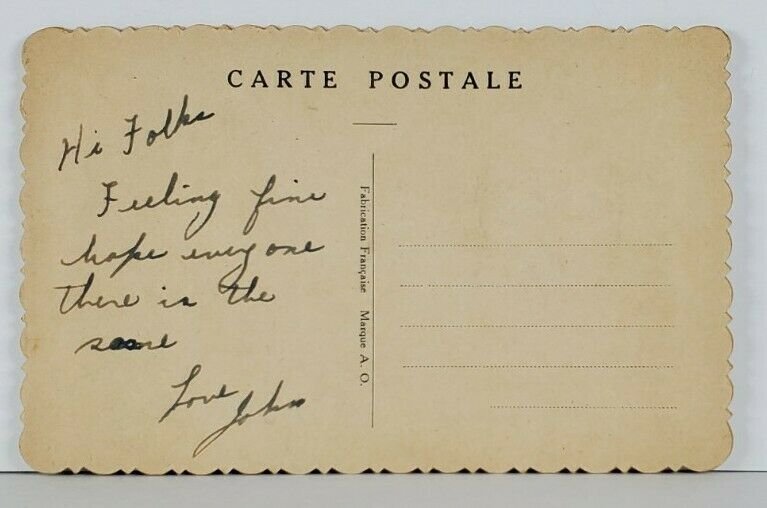 CARTE POSTALE
Hi Folks
Feeling fine
hope every one
there is the
same
Love
John
Fabrication Française Marque A. O.